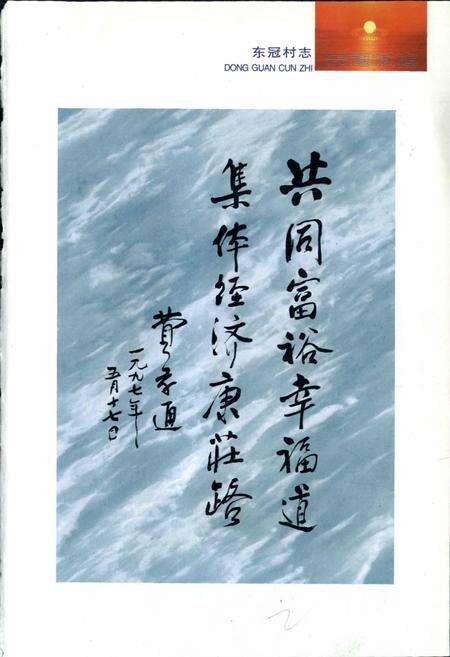 东冠村志
DONG GUAN CUN ZHI
共同富裕幸福道
集体经济康莊路
费孝通
一九九七年
五月十七日